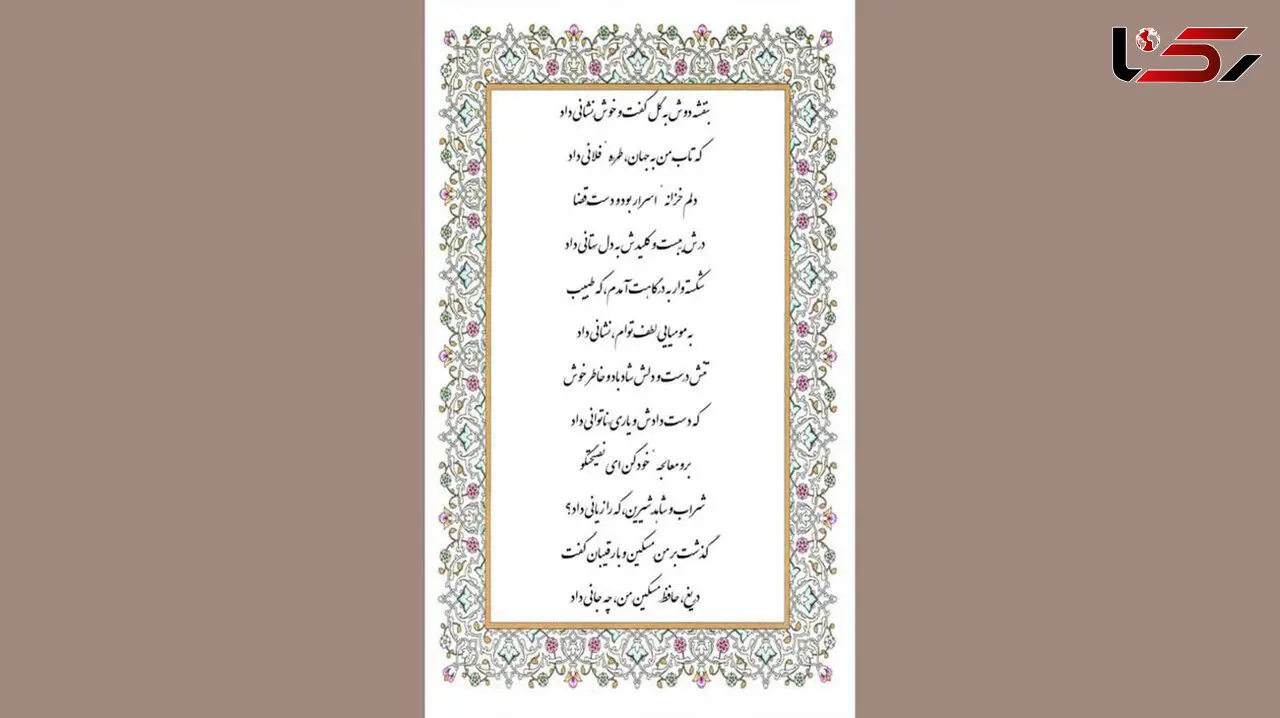 رکنا
بنفشه دوش به گل گفت و خوش نشانی داد
که تاب من به جهان، طرهٔ فلانی داد
دلم خزانهٔ اسرار بود و دست قضا
درش ببست و کلیدش به دل ستانی داد
شکسته وار به درگاهت آمدم، که طبیب
به مومیایی لطف توام، نشانی داد
تنش درست و دلش شاد باد و خاطر خوش
که دست دادش و یاری ناتوانی داد
برو معالجهٔ خود کن ای نصیحتگو
شراب و شاهد شیرین، که را زیانی داد؟
گذشت بر من مسکین و با رقیبان گفت
دریغ، حافظ مسکین من، چه جانی داد